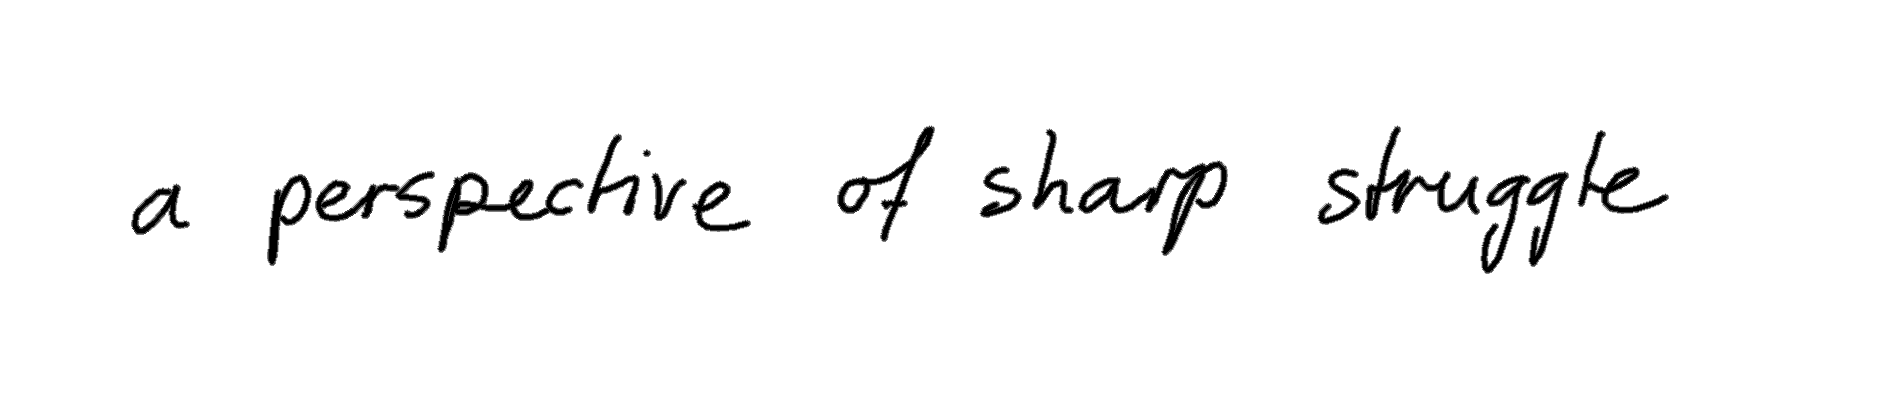 a perspective of sharp struggle